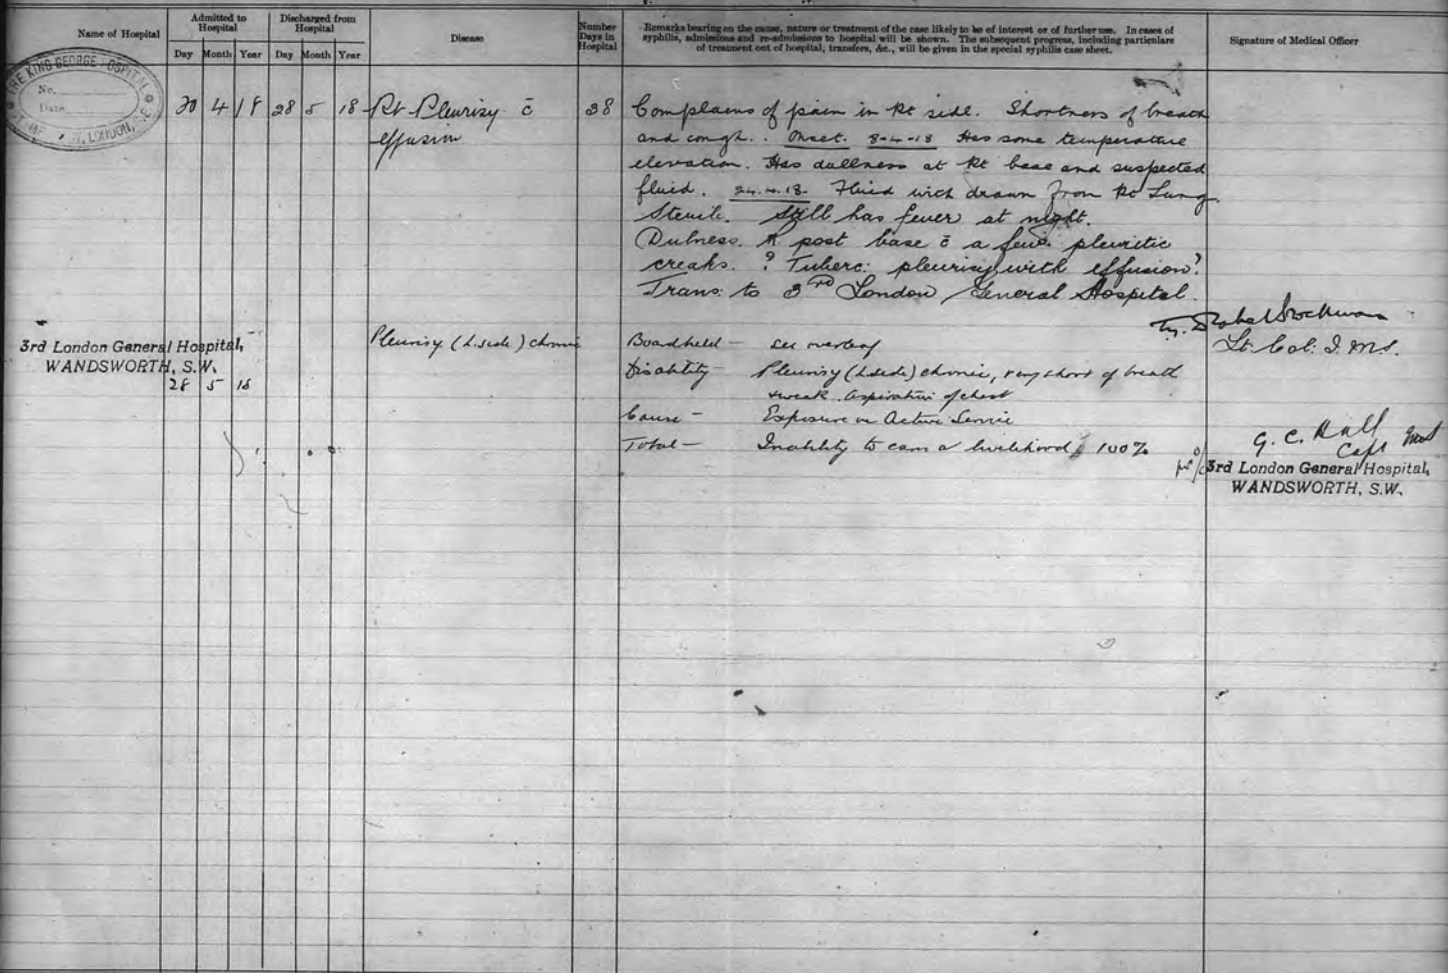 Name of Hospital
Admitted to Hospital
Day Month Year
Discharged from Hospital
Day Month Year
Disease
Number Days in Hospital
Remarks bearing on the cause, nature or treatment of the case likely to be of interest or of further use. In cases of
syphilis, admissions and re-admissions to hospital will be shown. The subsequent progress, including particulars
of treatment out of hospital, transfers, &c., will be given in the special syphilis case sheet.
Signature of Medical Officer
THE KING GEORGE HOSPITAL
No.
Date
LONDON, S.E.
20 4 18 28 5 18 Rt Pleurisy c̄
effusion
38
Complains of pain in Rt side. Shortness of breath
and cough. Onset. 8-4-18 Has some temperature
elevation. Has dullness at Rt base and suspected
fluid. 24.4.18. Fluid with drawn from Rt Lung
Sterile. Still has fever at night.
Dulness. R post base c̄ a few pleuritic
creaks. ? Tuberc: pleurisy with effusion?
Trans: to 3rd London General Hospital.
Stockman
Lt. Col. I.M.S.
3rd London General Hospital,
WANDSWORTH, S.W.
28 5 18
Pleurisy (L. side) chronic
Board held - see overleaf
Disability - Pleurisy (L side) chronic, very short of breath
& weak. Aspiration of chest
Cause - Exposure on Active Service
Total - Inability to earn a livelihood 100%
G. C. Hall
Capt
3rd London General Hospital,
WANDSWORTH, S.W.